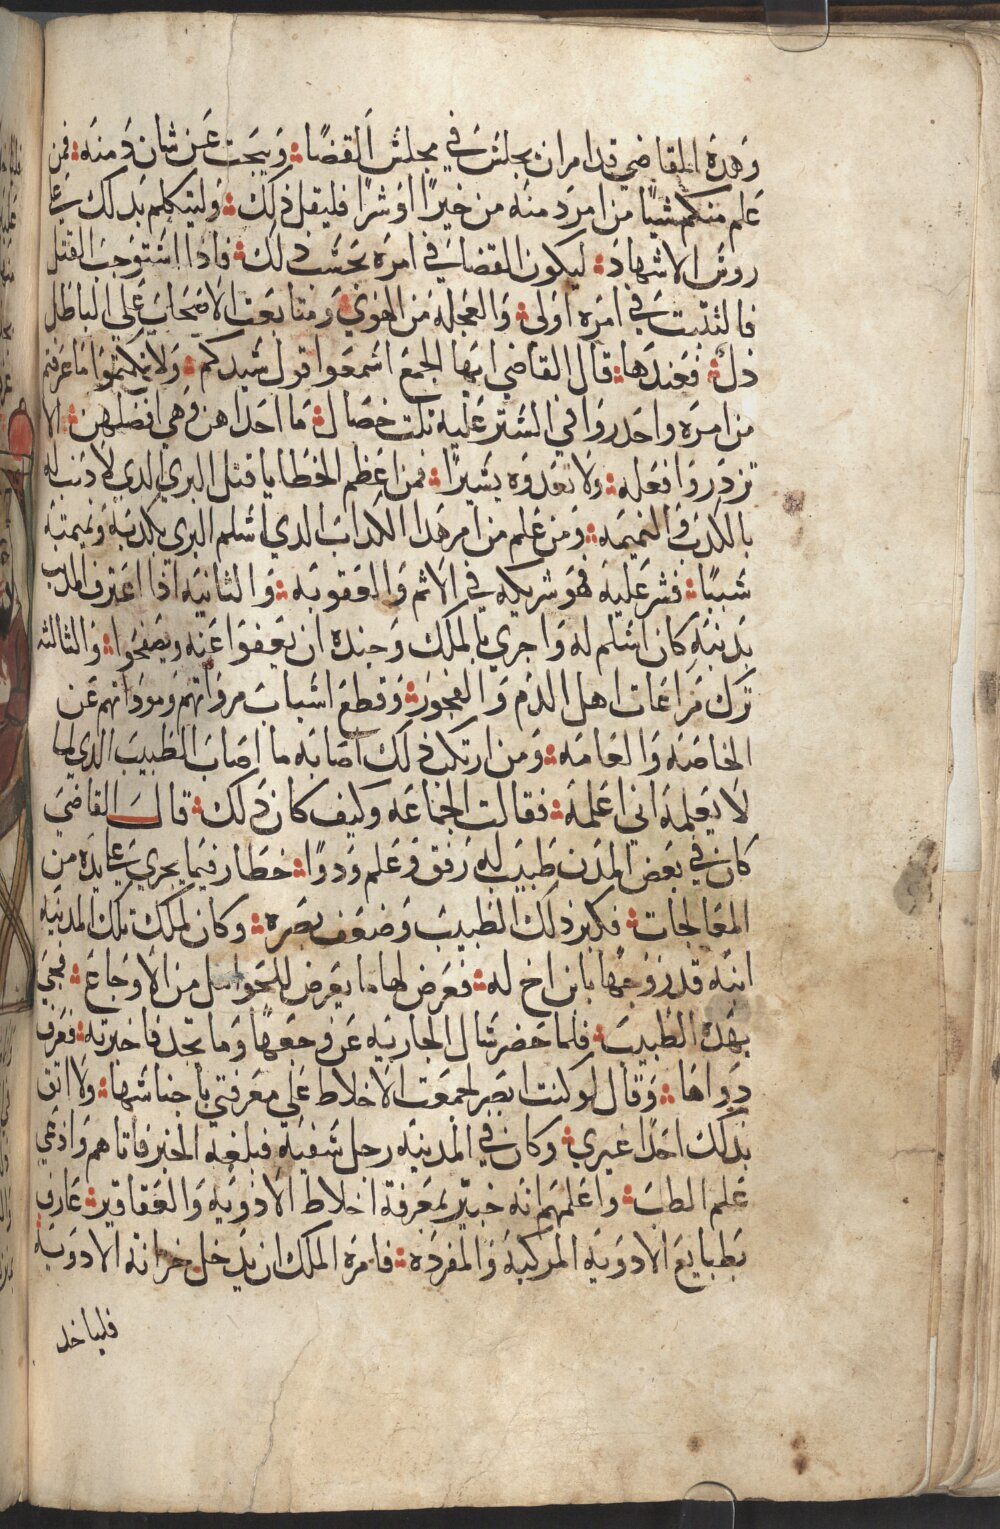 وهذه القاضي قد امر ان يجلس في مجلس القضا ويبحث عن شان دمنه فمن
علم منكم شيًا من امر دمنه من خيرًا او شرًا فليقل ذلك وليتكلم بدلك على
روس الاشهاد ليكون القضا في امره بحسب دلك فادا استوجب القتل
فالتثبت في امره اولى والعجله من الهوى ومتابعت الاصحاب على الباطل
ذل فعندها قال القاضي ايها الجمع اسمعوا قول سيدكم ولا تكتموا ما عرفتم
من امره واحدروا في الستر عليه ثلت خصال ما احداهن وهي افضلهن الا
تزدروا فعله ولا تعدوه يسيرًا فمن اعظم الخطايا قتل البري الدي لا دنب له
بالكدب والنميمه ومن علم من امر هدا الكداب الدي اسلم البري بكدبه ونميمته
شيًا فستر عليه فهو شريكه في الاثم والعقوبه والثانيه ادا اعترف المدنب
بدنبه كان اسلم له واجرى بالملك وجنده ان يعفوا عنه ويصفحوا والثالثه
ترك مراعات اهل الدم والفجور وقطع اسباب مرواتهم وموداتهم عن
الخاصه والعامه ومن ارتكب ذلك اصابه ما اصاب الطبيب الدي لما
لا يعلمه اني اعلمه فقالت الجماعه وكيف كان دلك قال القاضي
كان في بعض المدن طبيب له رفق وعلم ودوا خطار فيما يجري على يده من
المعالجات فكبر ذلك الطبيب وضعف بصره وكان لملك تلك المدينه
ابنه قد زوجها بابن اخ له فعرض لها ما يعرض للحوامل من الاوجاع فجي
بهدا الطبيب فلما حضر سال الجاريه عن وجعها وما تجد فاخبرته فعرف
دواها وقال لو كنت ابصر لجمعت الاخلاط على معرفتي باجناسها ولا اثق
بدلك احدًا غيري وكان في المدينه رجل سفيه فبلغه الخبر فاتاهم وادعى
علم الطب واعلمهم انه خبير بمعرفة اخلاط الادويه والعقاقير عارف
بطبايع الادويه المركبه والمفرده فامره الملك ان يدخل خزانة الادويه
فلياخد